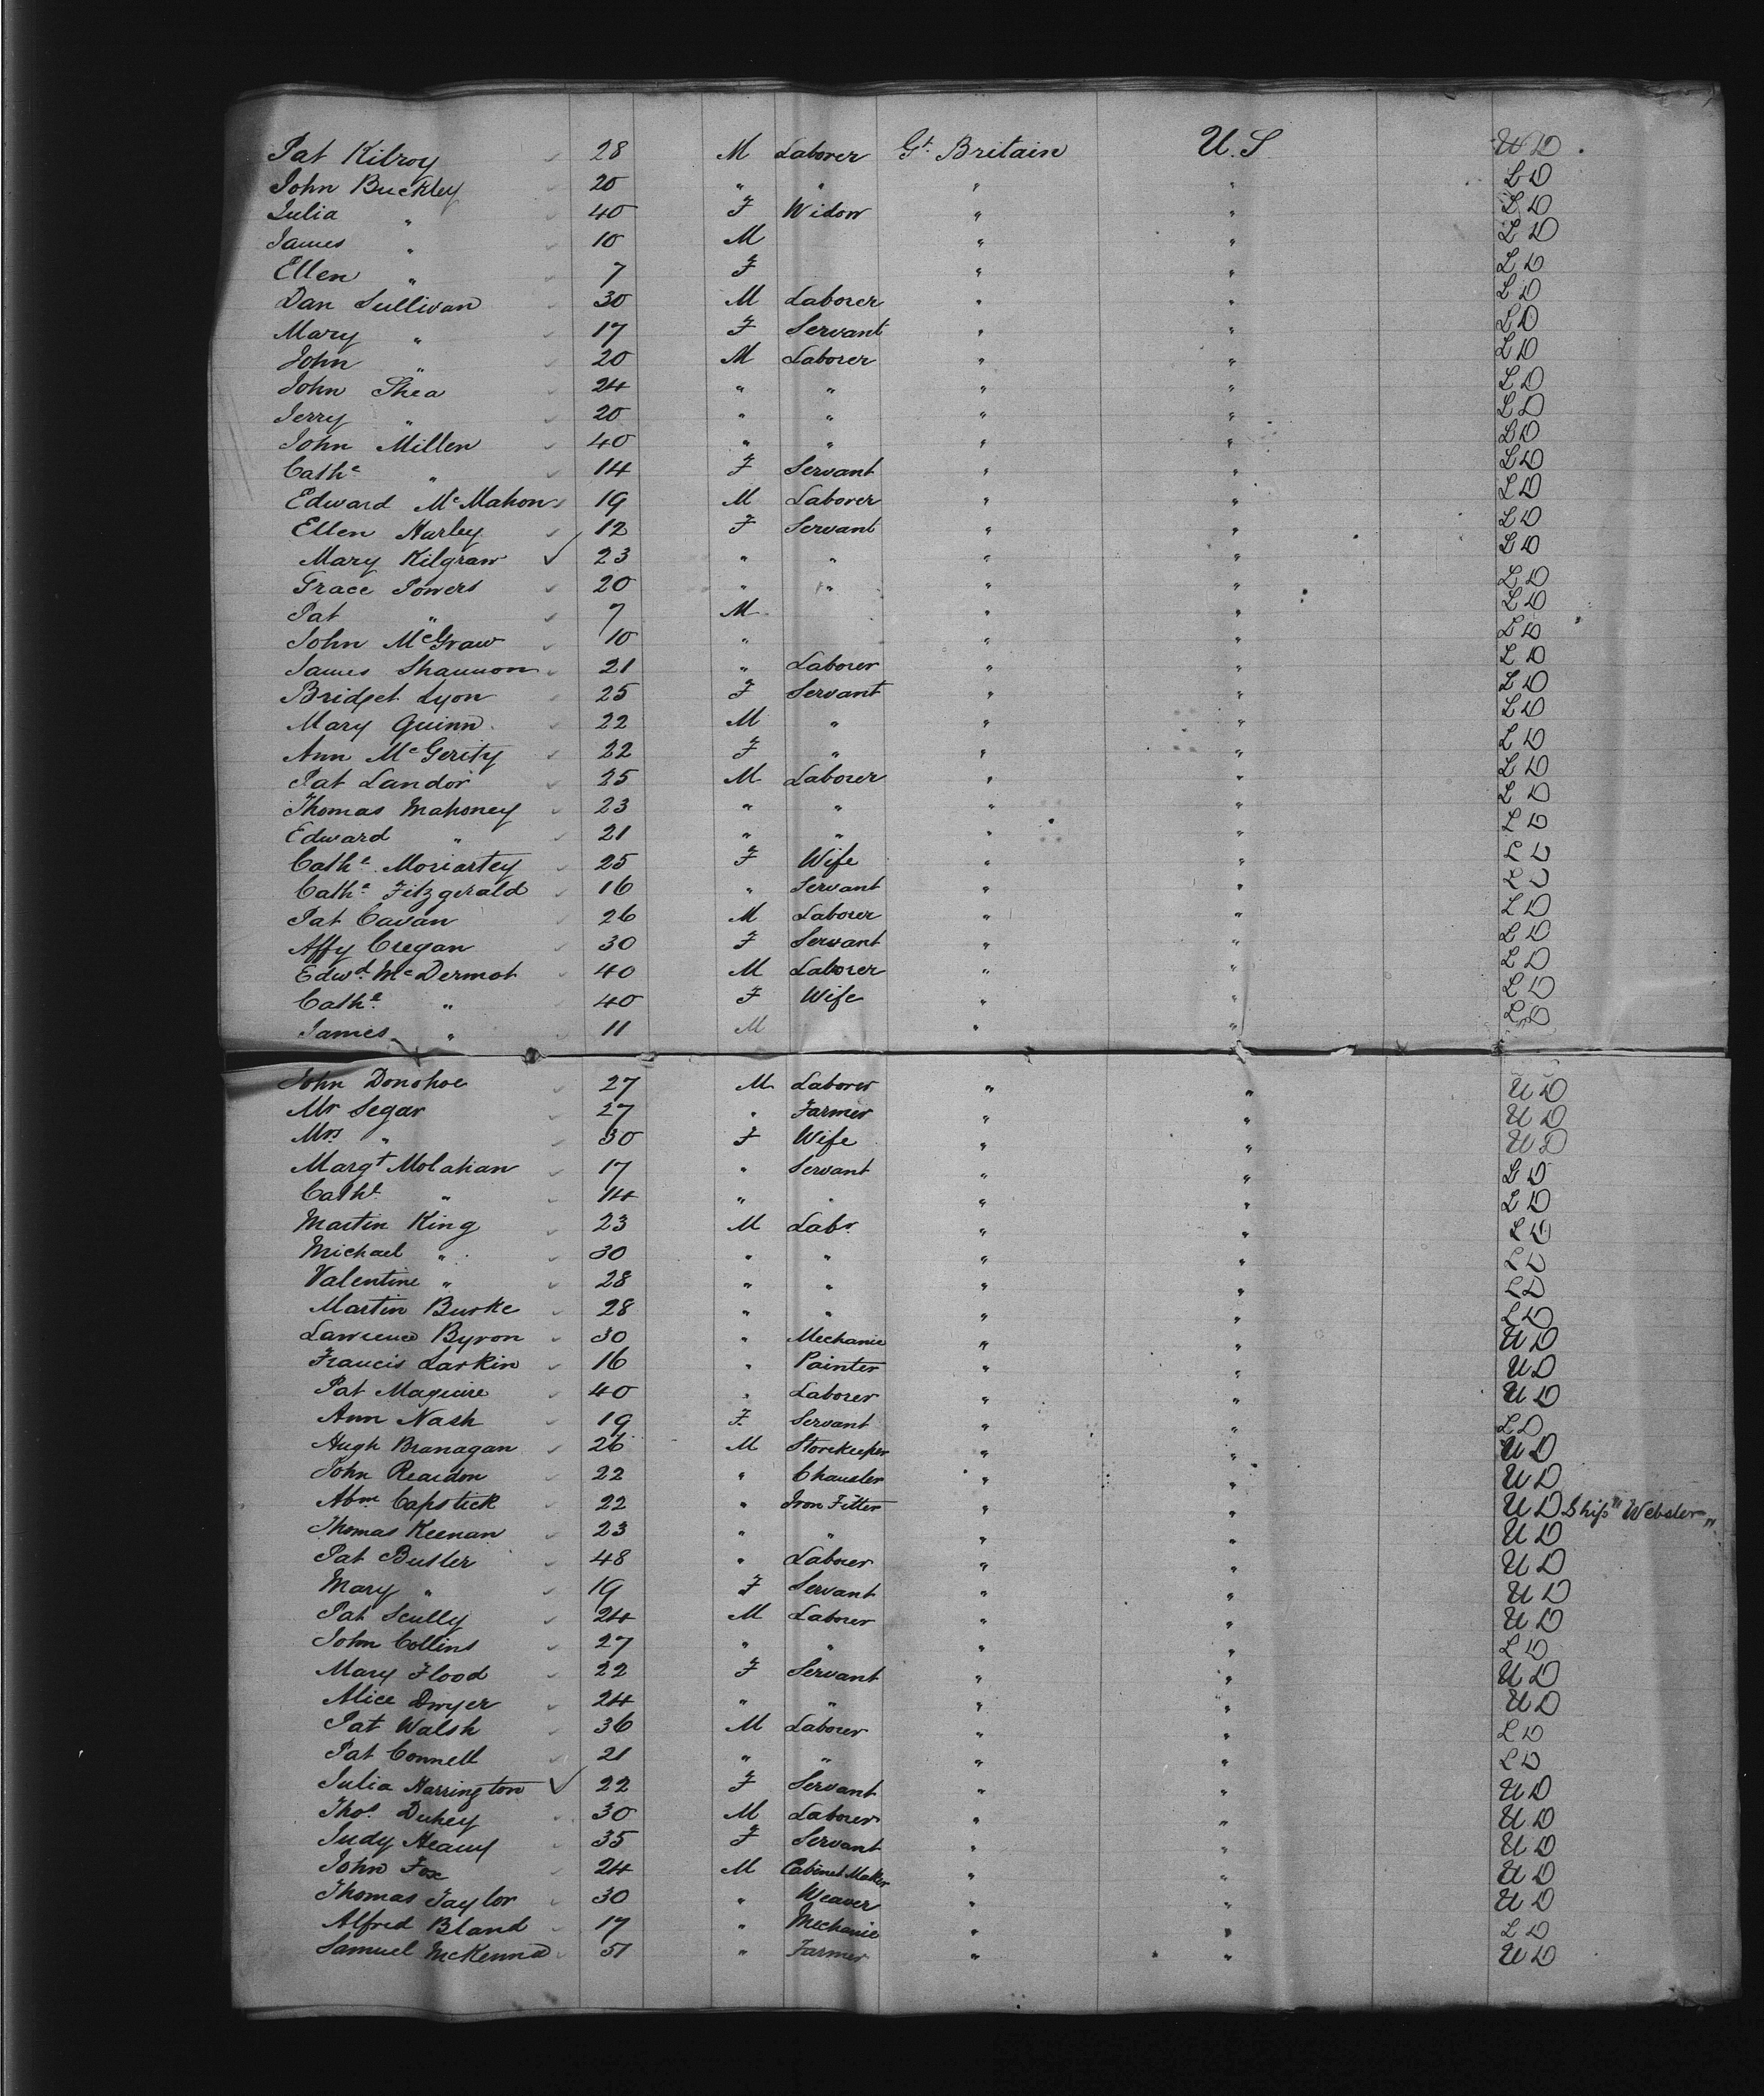 Pat Kilroy 28 M Laborer Gt. Britain U.S. U D
John Buckley 20 " " " " L D
Julia " 40 F Widow " " L D
James " 10 M " " L D
Ellen " 7 F " " L D
Dan Sullivan 30 M Laborer " " L D
Mary " 17 F Servant " " L D
John " 20 M Laborer " " L D
John Shea 24 " " " " L D
Jerry " 20 " " " " L D
John Millen 40 " " " " L D
Cathe " 14 F Servant " " L D
Edward McMahon 19 M Laborer " " L D
Ellen Hurley 12 F Servant " " L D
Mary Kilgraw ✓ 23 " " " " L D
Grace Powers 20 " " " " L D
Pat " 7 M " " L D
John McGraw 10 " " " L D
James Shannon 21 " Laborer " " L D
Bridget Lyon 25 F Servant " " L D
Mary Quinn 22 M " " " L D
Ann McGerity 22 F " " " L D
Pat Landor 25 M Laborer " " L D
Thomas Mahoney 23 " " " " L D
Edward " 21 " " " " L D
Cathe Moriartey 25 F Wife " " L D
Cathe Fitzgerald 16 " Servant " " L D
Pat Cavan 26 M Laborer " " L D
Affy Cregan 30 F Servant " " L D
Edwd McDermot 40 M Laborer " " L D
Cathe " 40 F Wife " " L D
James " 11 M " " L D
John Donohoe 27 M Laborer " " U D
Mr Segar 27 " Farmer " " U D
Mrs " 30 F Wife " " U D
Margt Molahan 17 " Servant " " L D
Cathe " 14 " " " " L D
Martin King 23 M Labr " " L D
Michael " 30 " " " " L D
Valentine " 28 " " " " L D
Martin Burke 28 " " " " L D
Lawrence Byron 30 " Mechanic " " U D
Francis Larkin 16 " Painter " " U D
Pat Maguire 40 " Laborer " " U D
Ann Nash 19 F Servant " " L D
Hugh Branagan 26 M Storekeeper " " U D
John Reardon 22 " " " U D
Abm Capstick 22 " Iron Fitter " " U D Ship "Webster"
Thomas Keenan 23 " " " " U D
Pat Butler 48 " Laborer " " U D
Mary " 19 F Servant " " U D
Pat Scully 24 M Laborer " " U D
John Collins 27 " " " " L D
Mary Flood 22 F Servant " " U D
Alice Dwyer 24 " " " " U D
Pat Walsh 36 M Laborer " " L D
Pat Connell 21 " " " " L D
Julia Harrington ✓ 22 F Servant " " U D
Thos Duhey 30 M Laborer " " U D
Judy Heavy 35 F Servant " " U D
John Fox 24 M Cabinet Maker " " U D
Thomas Taylor 30 " Weaver " " U D
Alfred Bland 17 " Mechanic " " L D
Samuel McKenna 51 " Farmer " " U D